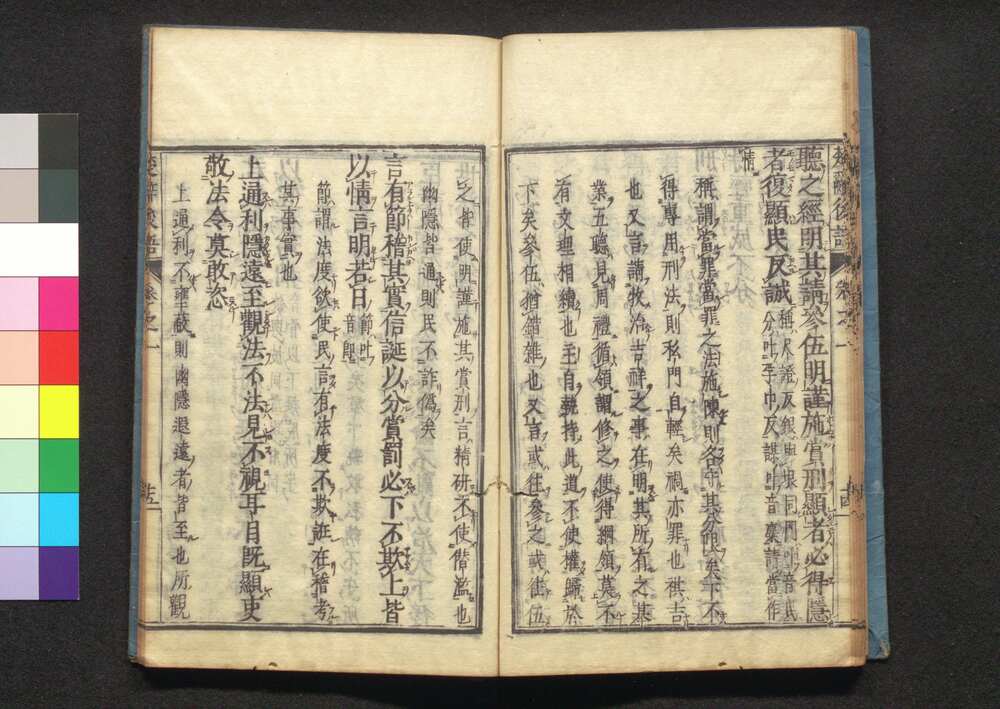 楚辭後語 卷之一 十四
聽之經明其請參伍明謹施賞刑顯者必得隱
者復顯民反誠
情
稱謂當罪當罪之法施陳則各守其分銀矣下不
得專用刑法則私門自輕矣禍亦罪也祺吉
也又言請牧治吉祥之事在明其所有之基
業五聽見周禮循領謂修之使得綱領莫不
有文理相續也主自執持此道不使權歸於
下矣參伍猶錯雜也又言或往參之或往伍
之皆使明謹施其賞刑言精研不使僭濫也
幽隱皆通則民不詐僞矣
言有節稽其實信誕以分賞罰必下不欺上皆
以情言明若日節叶音即
節謂法度欲使民言有法度不欺誑在稽考
其事實也
上通利隱遠至觀法不法見不視耳目既顯吏
敬法令莫敢恣
上通利不壅蔽則幽隱遐遠者皆至也所觀
楚辭後語 卷之一 十五